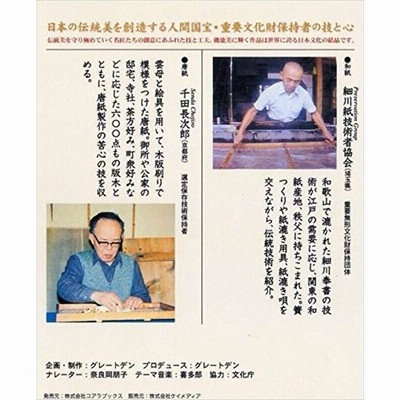 日本の伝統美を創造する人間国宝・重要文化財保持者の技と心
伝統美を守り極めていく名匠たちの創意にあふれた技と工夫。機能美に輝く作品は世界に誇る日本文化の結晶です。
●和紙
Preservation Group
細川紙技術者協会(埼玉県) 重要無形文化財保持団体
和歌山で漉かれた細川奉書の技
術が江戸の需要に応じ、関東の和
紙産地、秩父に持ちこまれた。簀
つくりや紙漉き用具、紙漉き唄を
交えながら、伝統技術を紹介。
●唐紙
Senda Chojiro
千田長次郎(京都府) 選定保存技術保持者
雲母と絵具を用いて、木版刷りで
模様をつけた唐紙。御所や公家の
邸宅、寺社、茶方好み、町衆好みな
どに応じた六〇〇点もの版木と
ともに、唐紙製作の苦心の技を収
める。
企画・制作:グレートデン プロデュース:グレートデン
ナレーター:奈良岡朋子 テーマ音楽:喜多郎 協力:文化庁
発売元:株式会社コアラブックス 販売元:株式会社ケイメディア